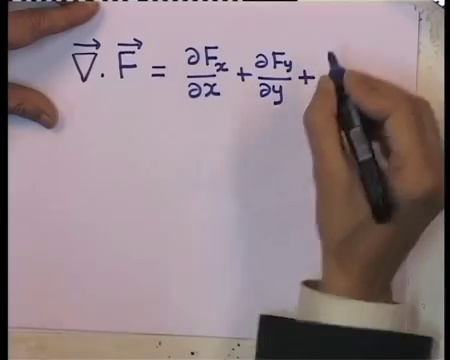 ∇⃗ . F⃗ = ∂Fx/∂x + ∂Fy/∂y +